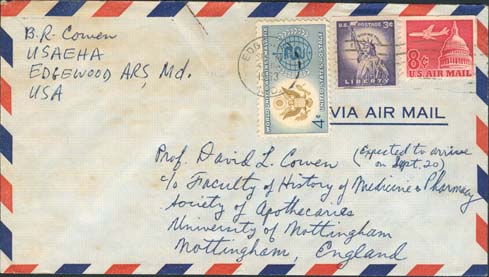 B.R. Cowen
USAEHA
EDGEWOOD ARS, Md.
USA
EDG
4¢
U.S. POSTAGE 3¢
LIBERTY
8¢
U.S. AIR MAIL
VIA AIR MAIL
Prof. David L. Cowen (Expected to arrive
on Sept. 20)
c/o Faculty of History of Medicine & Pharmacy
Society of Apothecaries
University of Nottingham
Nottingham, England